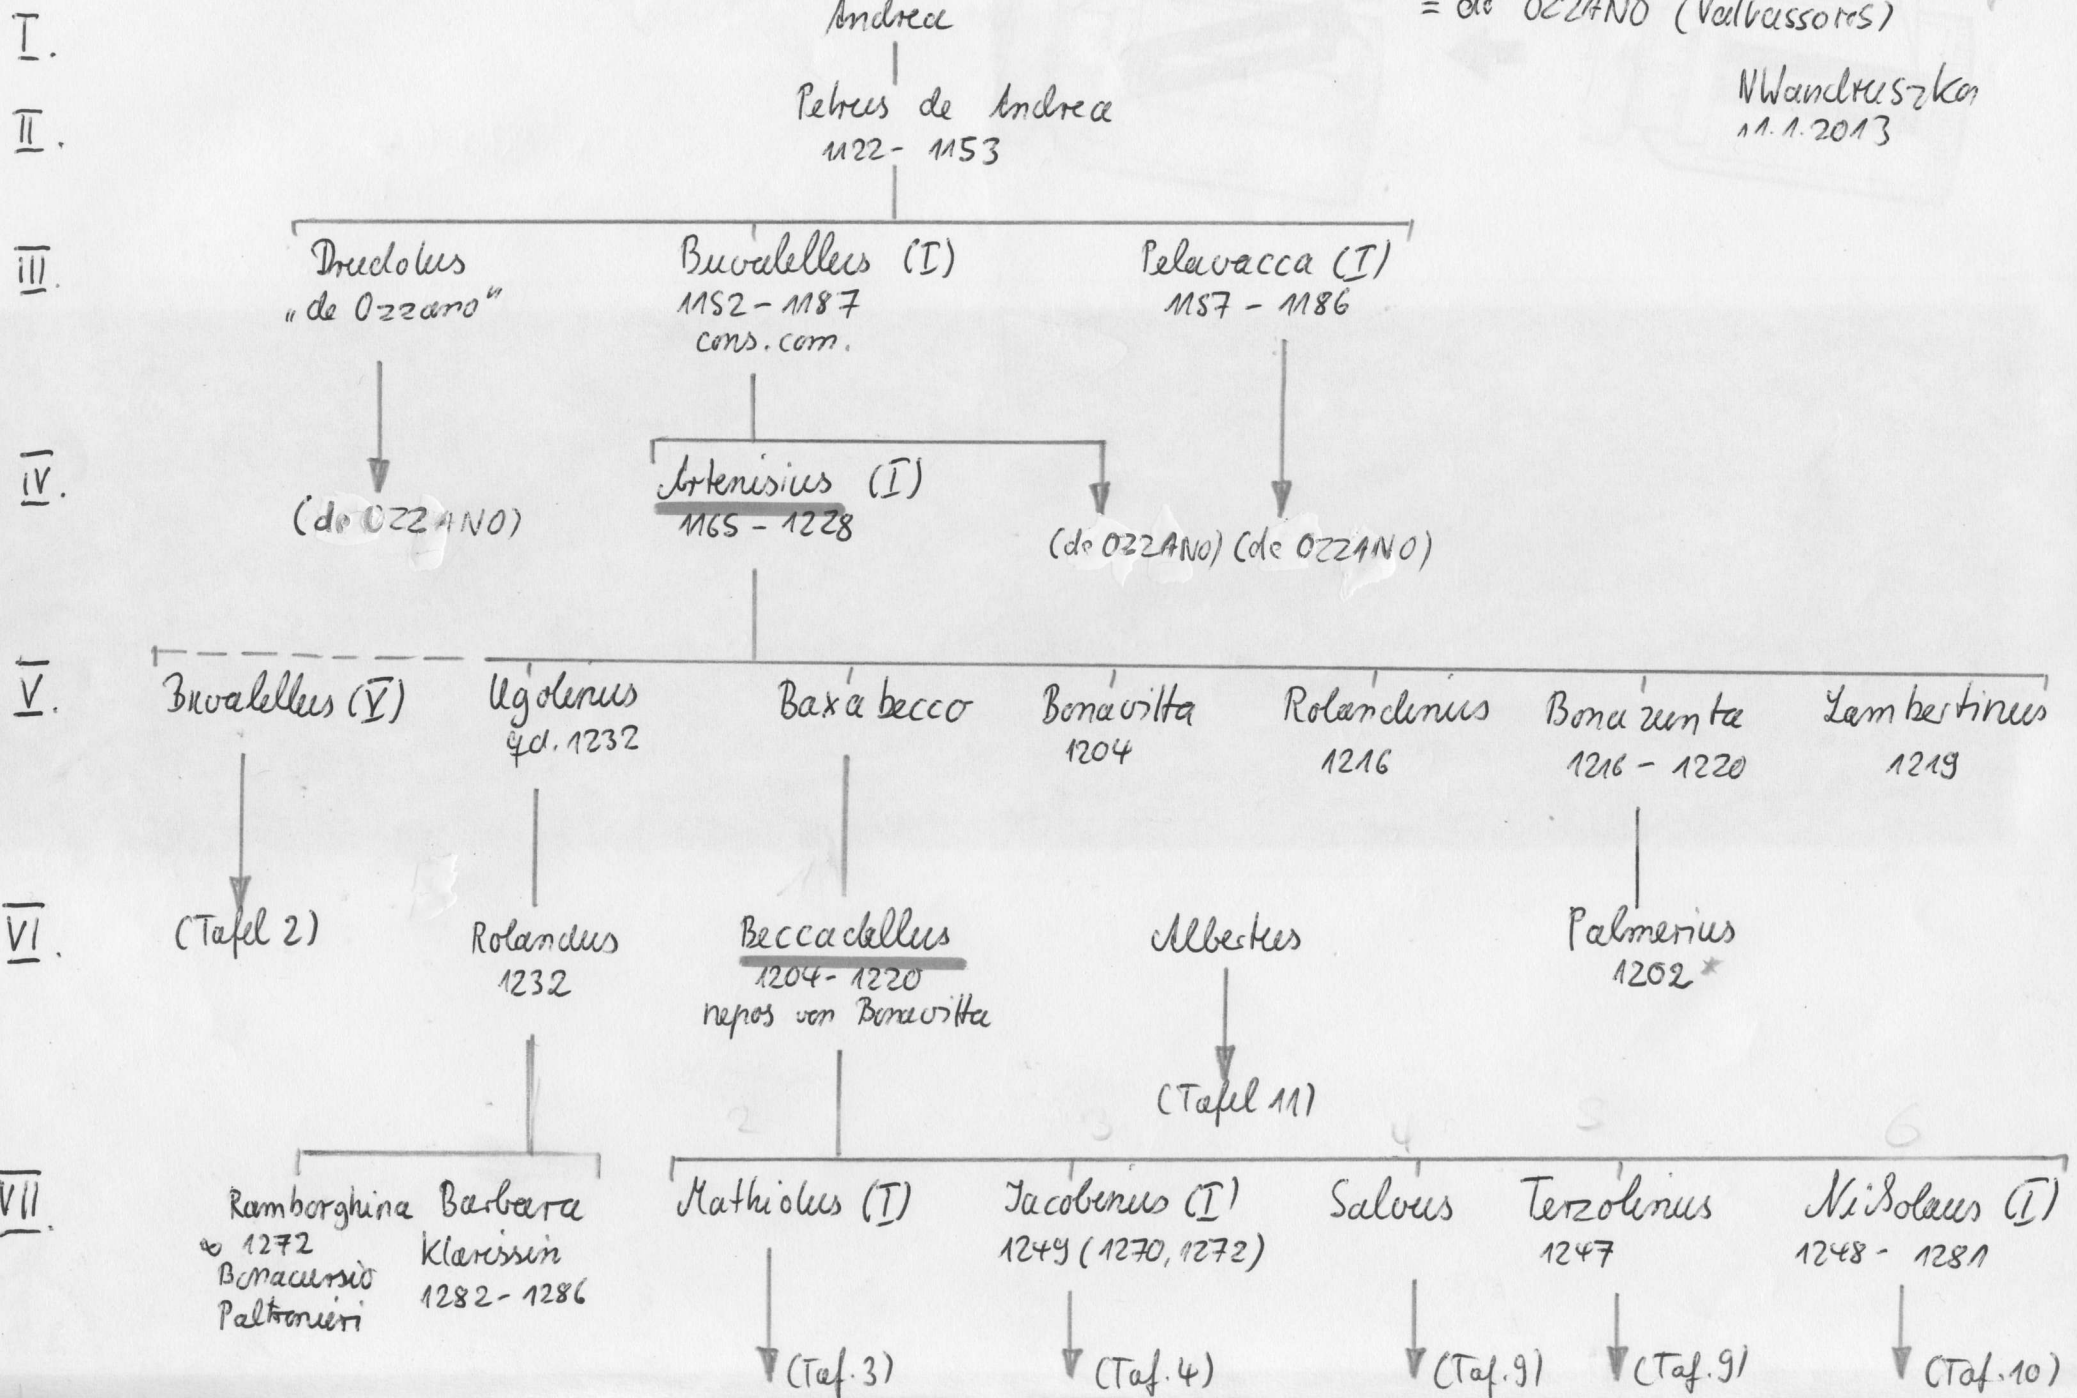 I.
Andrea
= de OZZANO (Valvassores)
NWandruszka
11.1.2013
II.
Petrus de Andrea
1122 - 1153
III.
Drudolus
„de Ozzano"
Buvalellus (I)
1152 - 1187
cons. com.
Pelavacca (I)
1157 - 1186
IV.
(de OZZANO)
Artenisius (I)
1165 - 1228
(de OZZANO)
(de OZZANO)
V.
Buvalellus (V)
Ugolinus
qd. 1232
Baxabecco
Bonavitta
1204
Rolandinus
1216
Bonazunta
1216 - 1220
Lambertinus
1219
VI.
(Tafel 2)
Rolandus
1232
Beccadellus
1204 - 1220
nepos von Bonavitta
Albertus
(Tafel 11)
Palmerius
1202*
2 3 4 5 6
VII.
Ramborghina
∞ 1272
Bonacursio
Paltronieri
Barbara
Klarissin
1282 - 1286
Mathiolus (I)
(Taf. 3)
Jacobinus (I)
1249 (1270, 1272)
(Taf. 4)
Salvus
(Taf. 9)
Terzolinus
1247
(Taf. 9)
Nikolaus (I)
1248 - 1281
(Taf. 10)